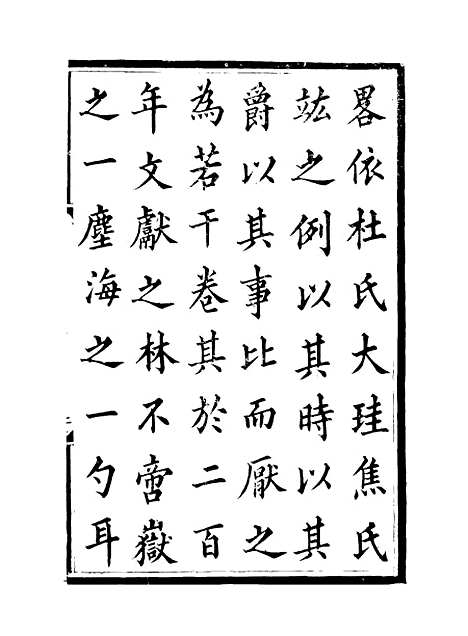 畧依杜氏大珪焦氏
竑之例以其時以其
爵以其事比而厭之
為若干卷其於二百
年文獻之林不啻嶽
之一塵海之一勺耳